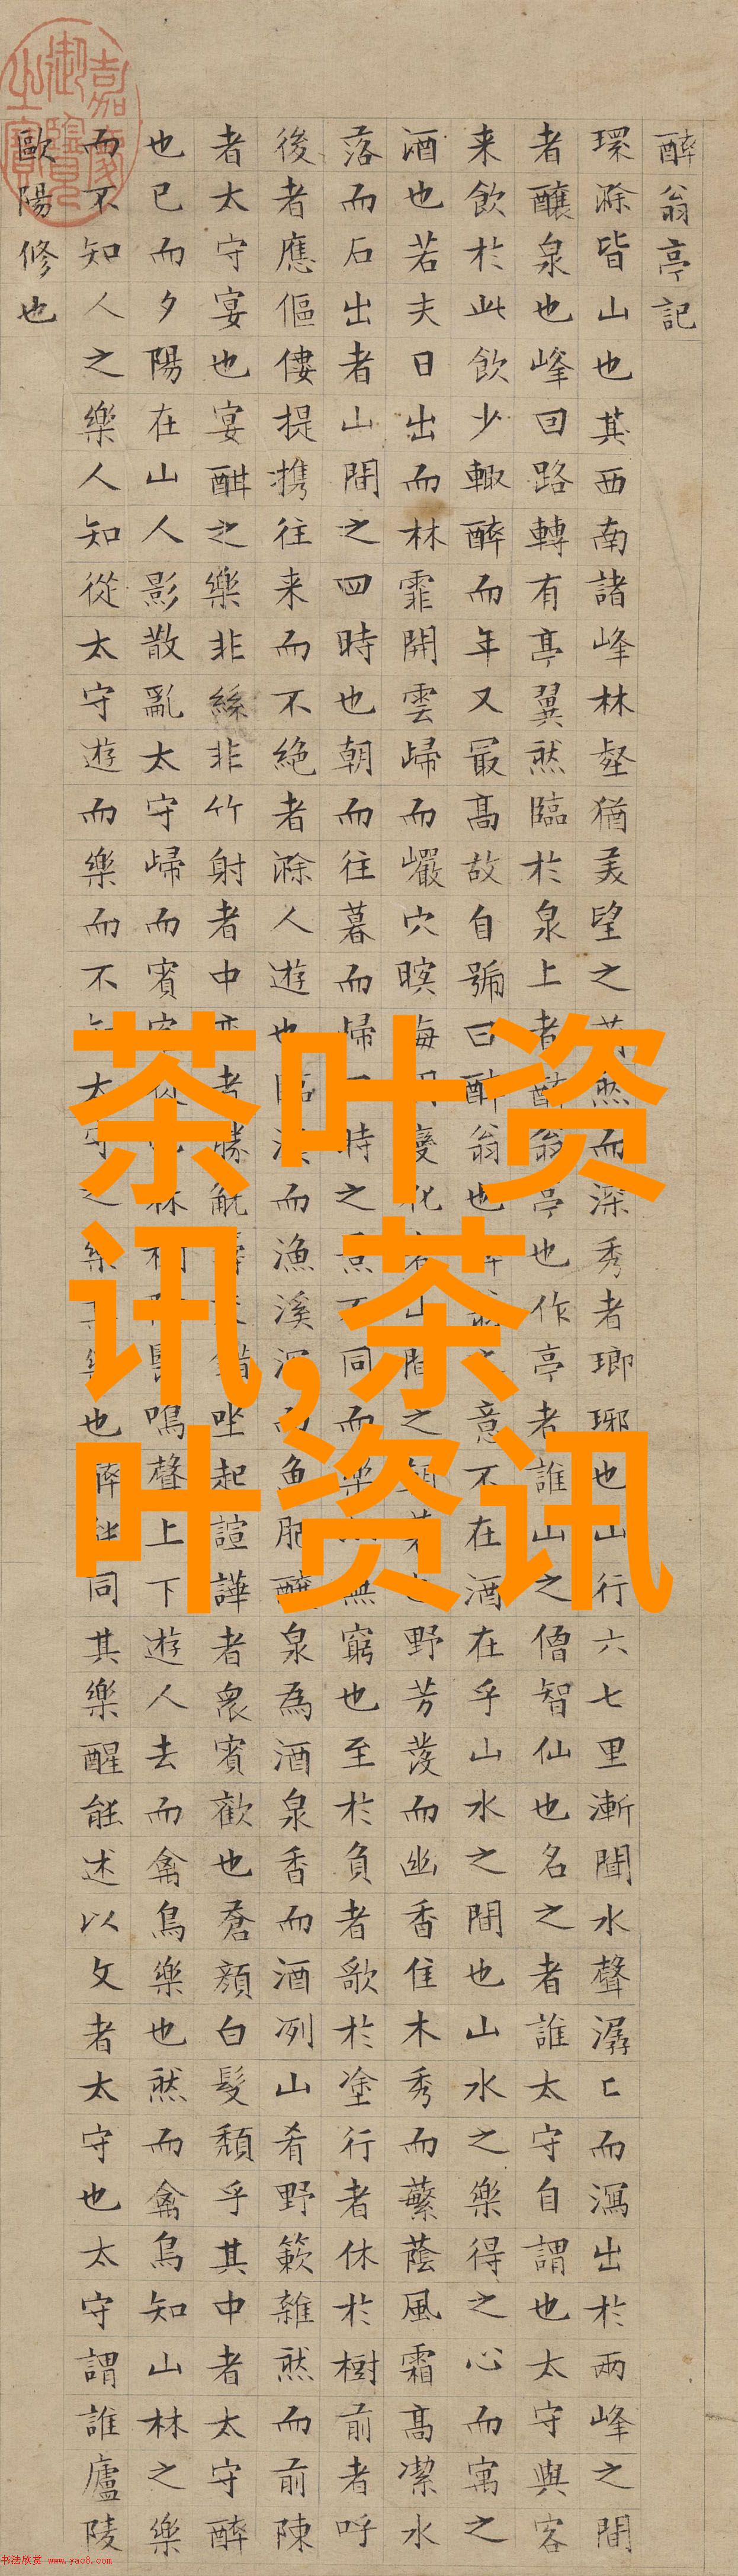 醉翁亭記
環滁皆山也其西南諸峰林壑猶美望之蔚然而深秀者瑯琊也山行六七里漸聞水聲潺匕而瀉出於兩峰之間
者釀泉也峰回路轉有亭翼然臨於泉上者醉翁亭也作亭者誰山之僧智仙也名之者誰太守自謂也太守與客
来飲於此飲少輙醉而年又最高故自號曰醉翁也醉翁意不在酒在乎山水之間也山水之樂得之心而寓之
酒也若夫日出而林霏開雲歸而巖穴暝晦明變化者山間之朝也野芳發而幽香佳木秀而蘩蔭風霜高潔水
落而石出者山間之四時也朝而往暮而歸時之景不同而樂無窮也至於負者歌於塗行者休於樹前者呼
後者應傴僂提攜往来而不絶者滁人遊也臨溪而漁溪深而魚肥釀泉為酒泉香而酒洌山肴野蔌雜然而前陳
者太守宴也宴酣之樂非絲非竹射者中奕者勝觥籌交錯坐起諠譁者衆賓歡也蒼顔白髮頹乎其中者太守醉
也已而夕陽在山人影散亂太守歸而賓客從也林樹陰翳鳴聲上下遊人去而禽鳥樂也然而禽鳥知山林之樂
而不知人之樂人知從太守遊而樂而不知太守之樂其樂也醉能同其樂醒能述以文者太守也太守謂誰廬陵
歐陽修也
嘉慶御覽之寶
茶叶资
讯,茶
叶资讯
书法欣赏 www.yac8.com